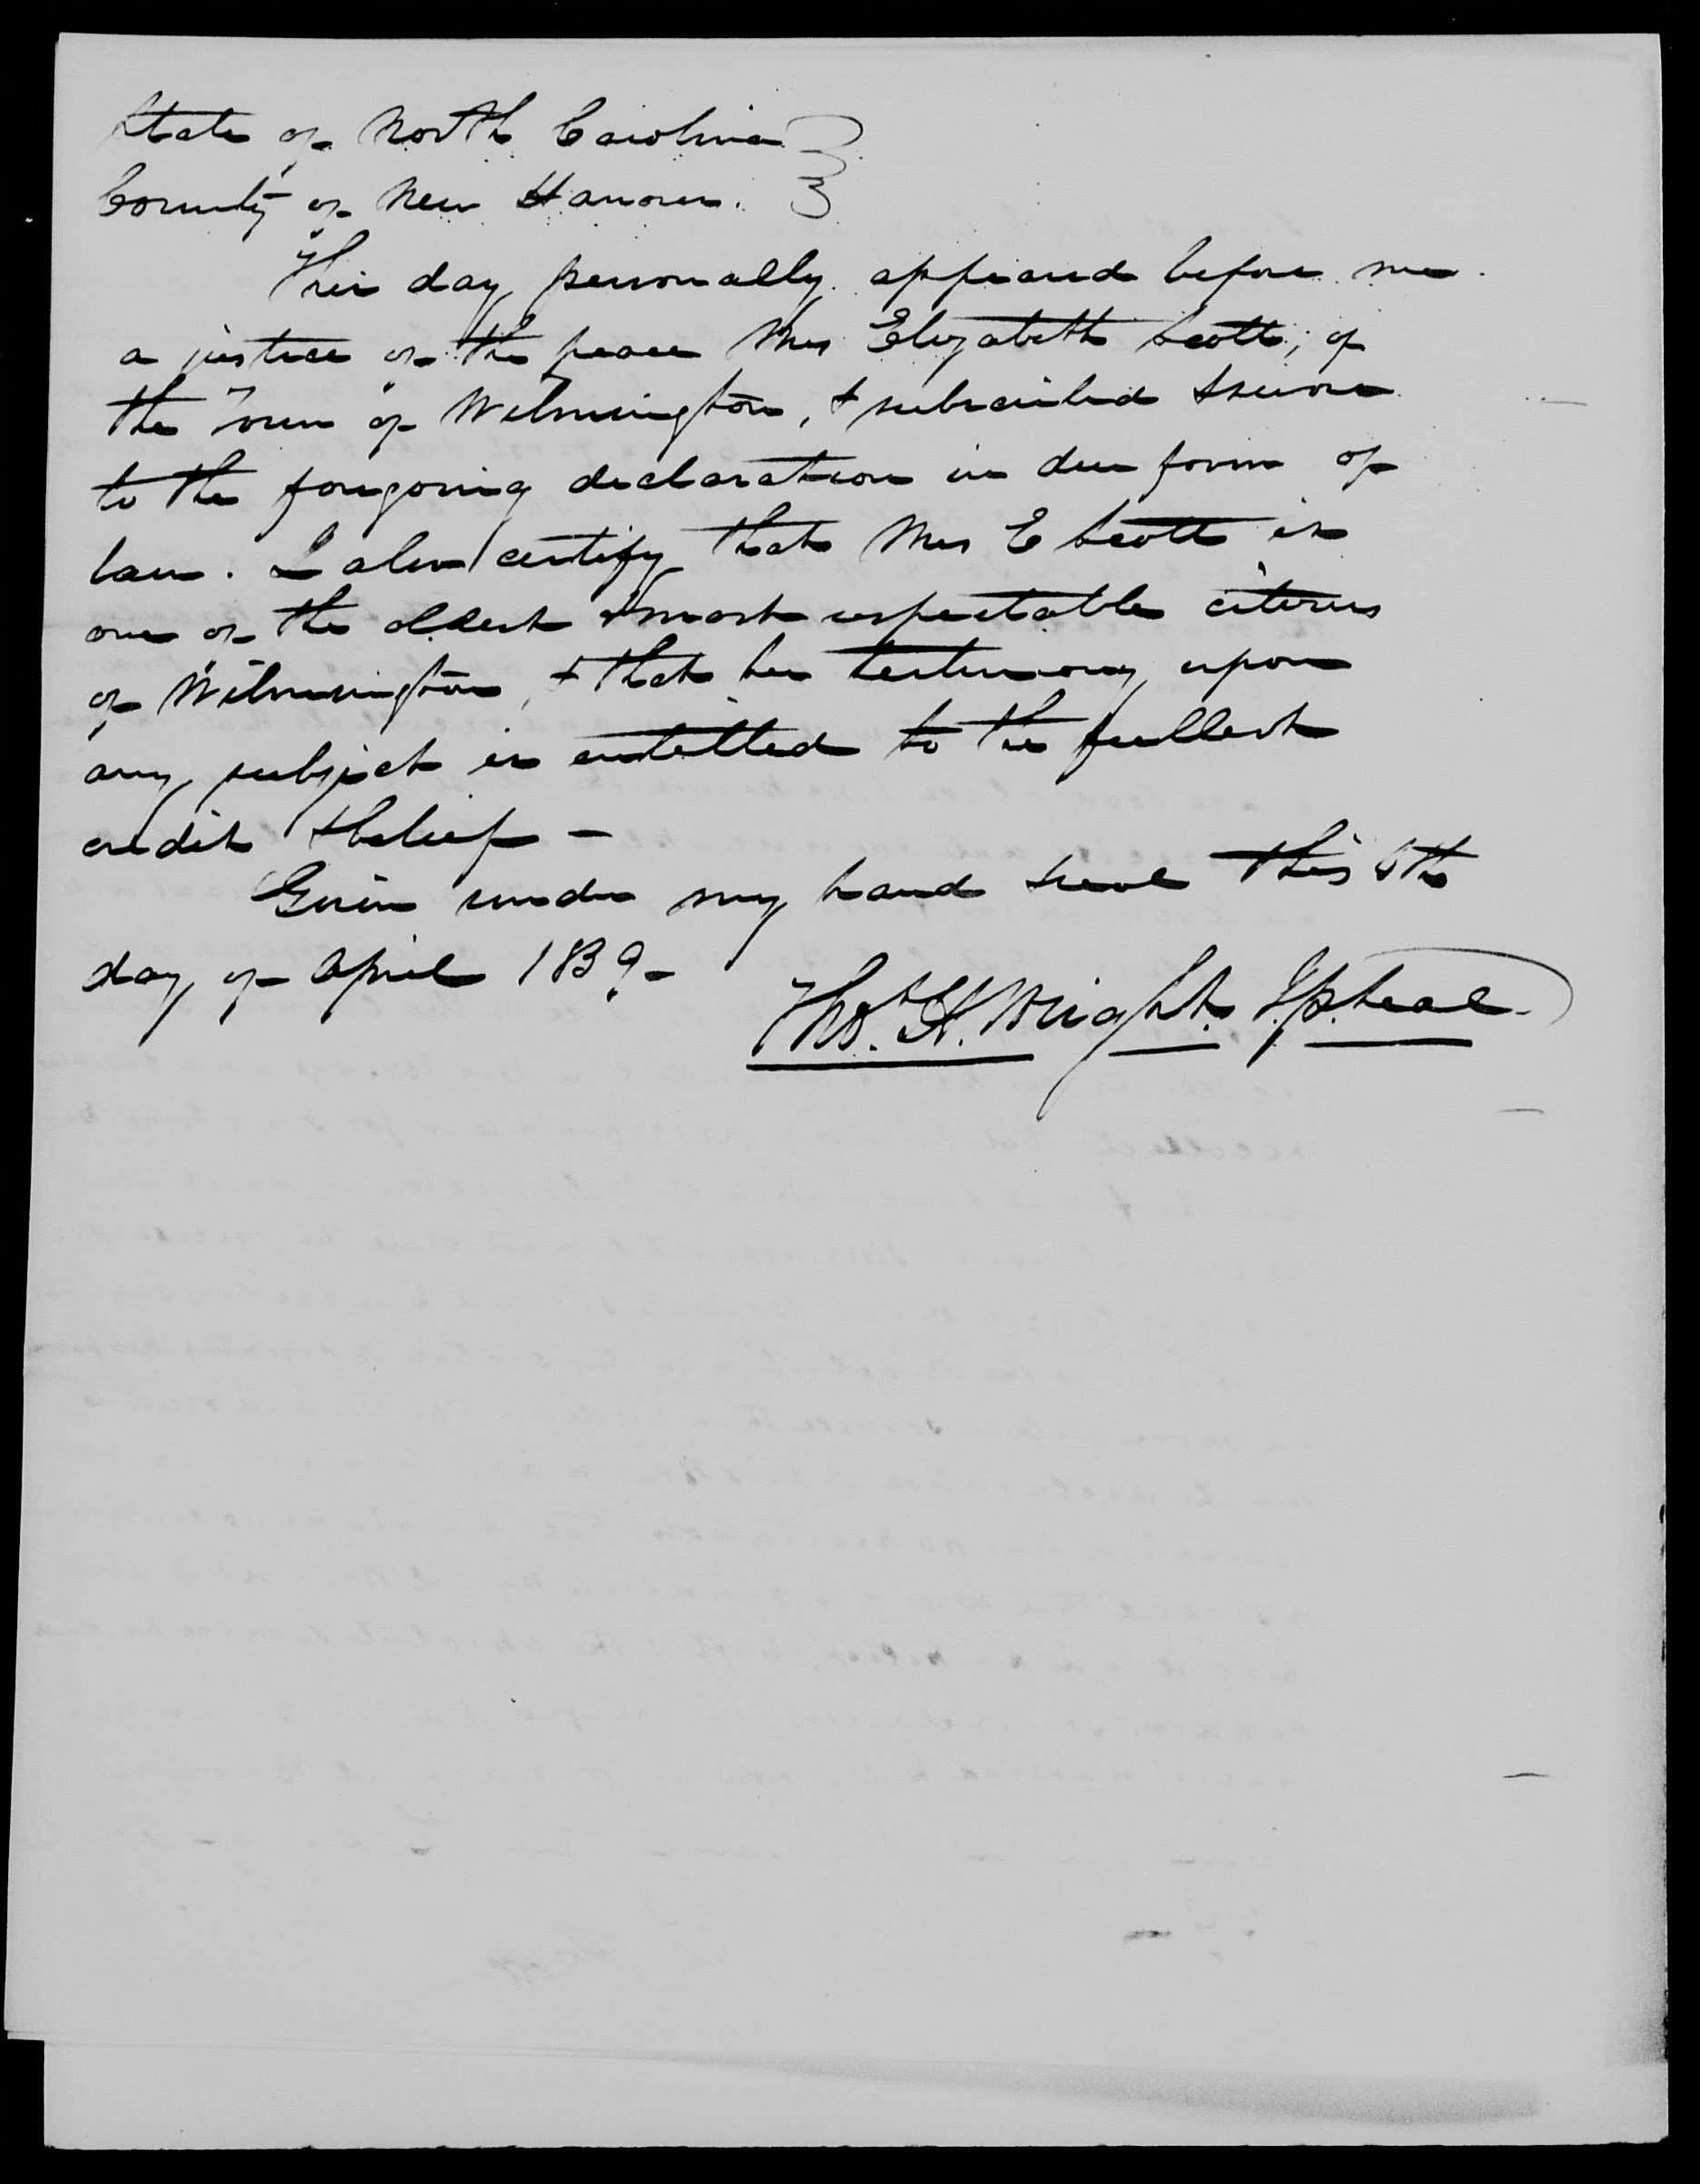 State of North Carolina
County of New Hanover.
This day personally appeared before me
a justice of the peace Mrs Elizabeth Scott, of
the Town of Wilmington, & subscribed & swore
to the foregoing declaration in due form of
law. I also certify that Mrs E Scott is
one of the oldest & most respectable citizens
of Wilmington, & that her testimony upon
any subject is entitled to the fullest
credit & belief —
Given under my hand & seal this 6th
day of April 1839 —
Thos. H. Wright. J.p. seal